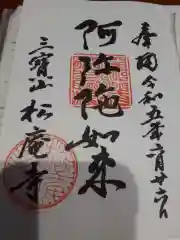 奉拝 令和五年二月廿六日
阿弥陀如来
三寶山 松庵寺